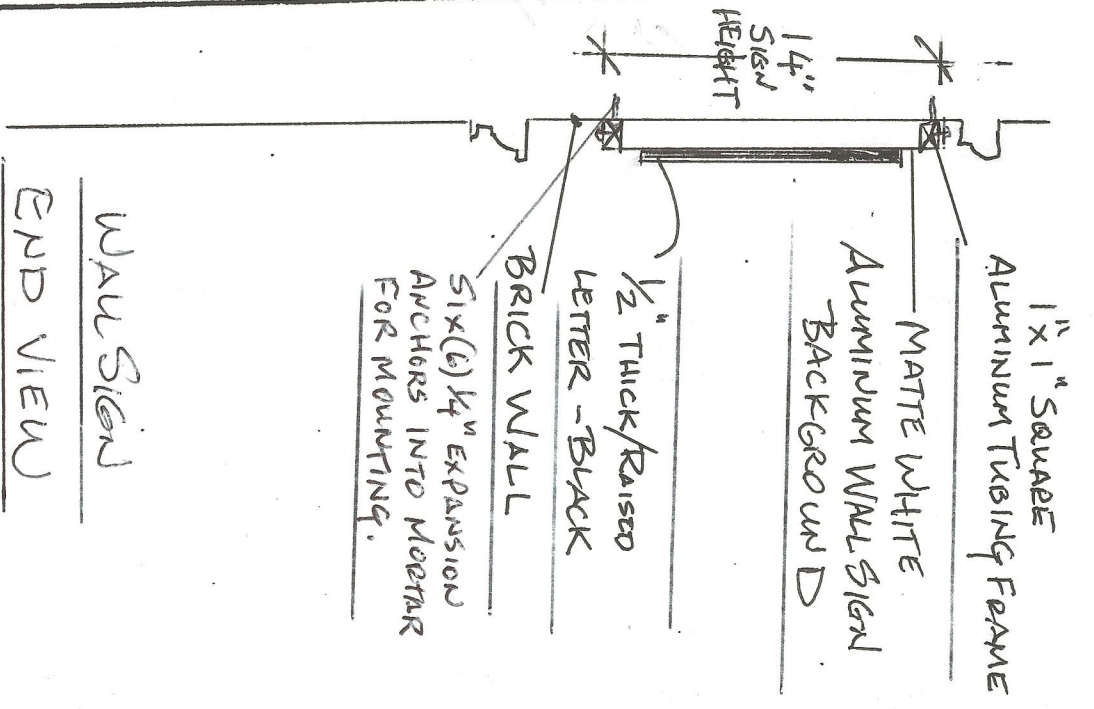 1" x 1" SQUARE
ALUMINUM TUBING FRAME
MATTE WHITE
ALUMINUM WALL SIGN
BACKGROUND
14"
SIGN
HEIGHT
1/2" THICK/RAISED
LETTER - BLACK
BRICK WALL
SIX (6) 1/4" EXPANSION
ANCHORS INTO MORTAR
FOR MOUNTING.
WALL SIGN
END VIEW